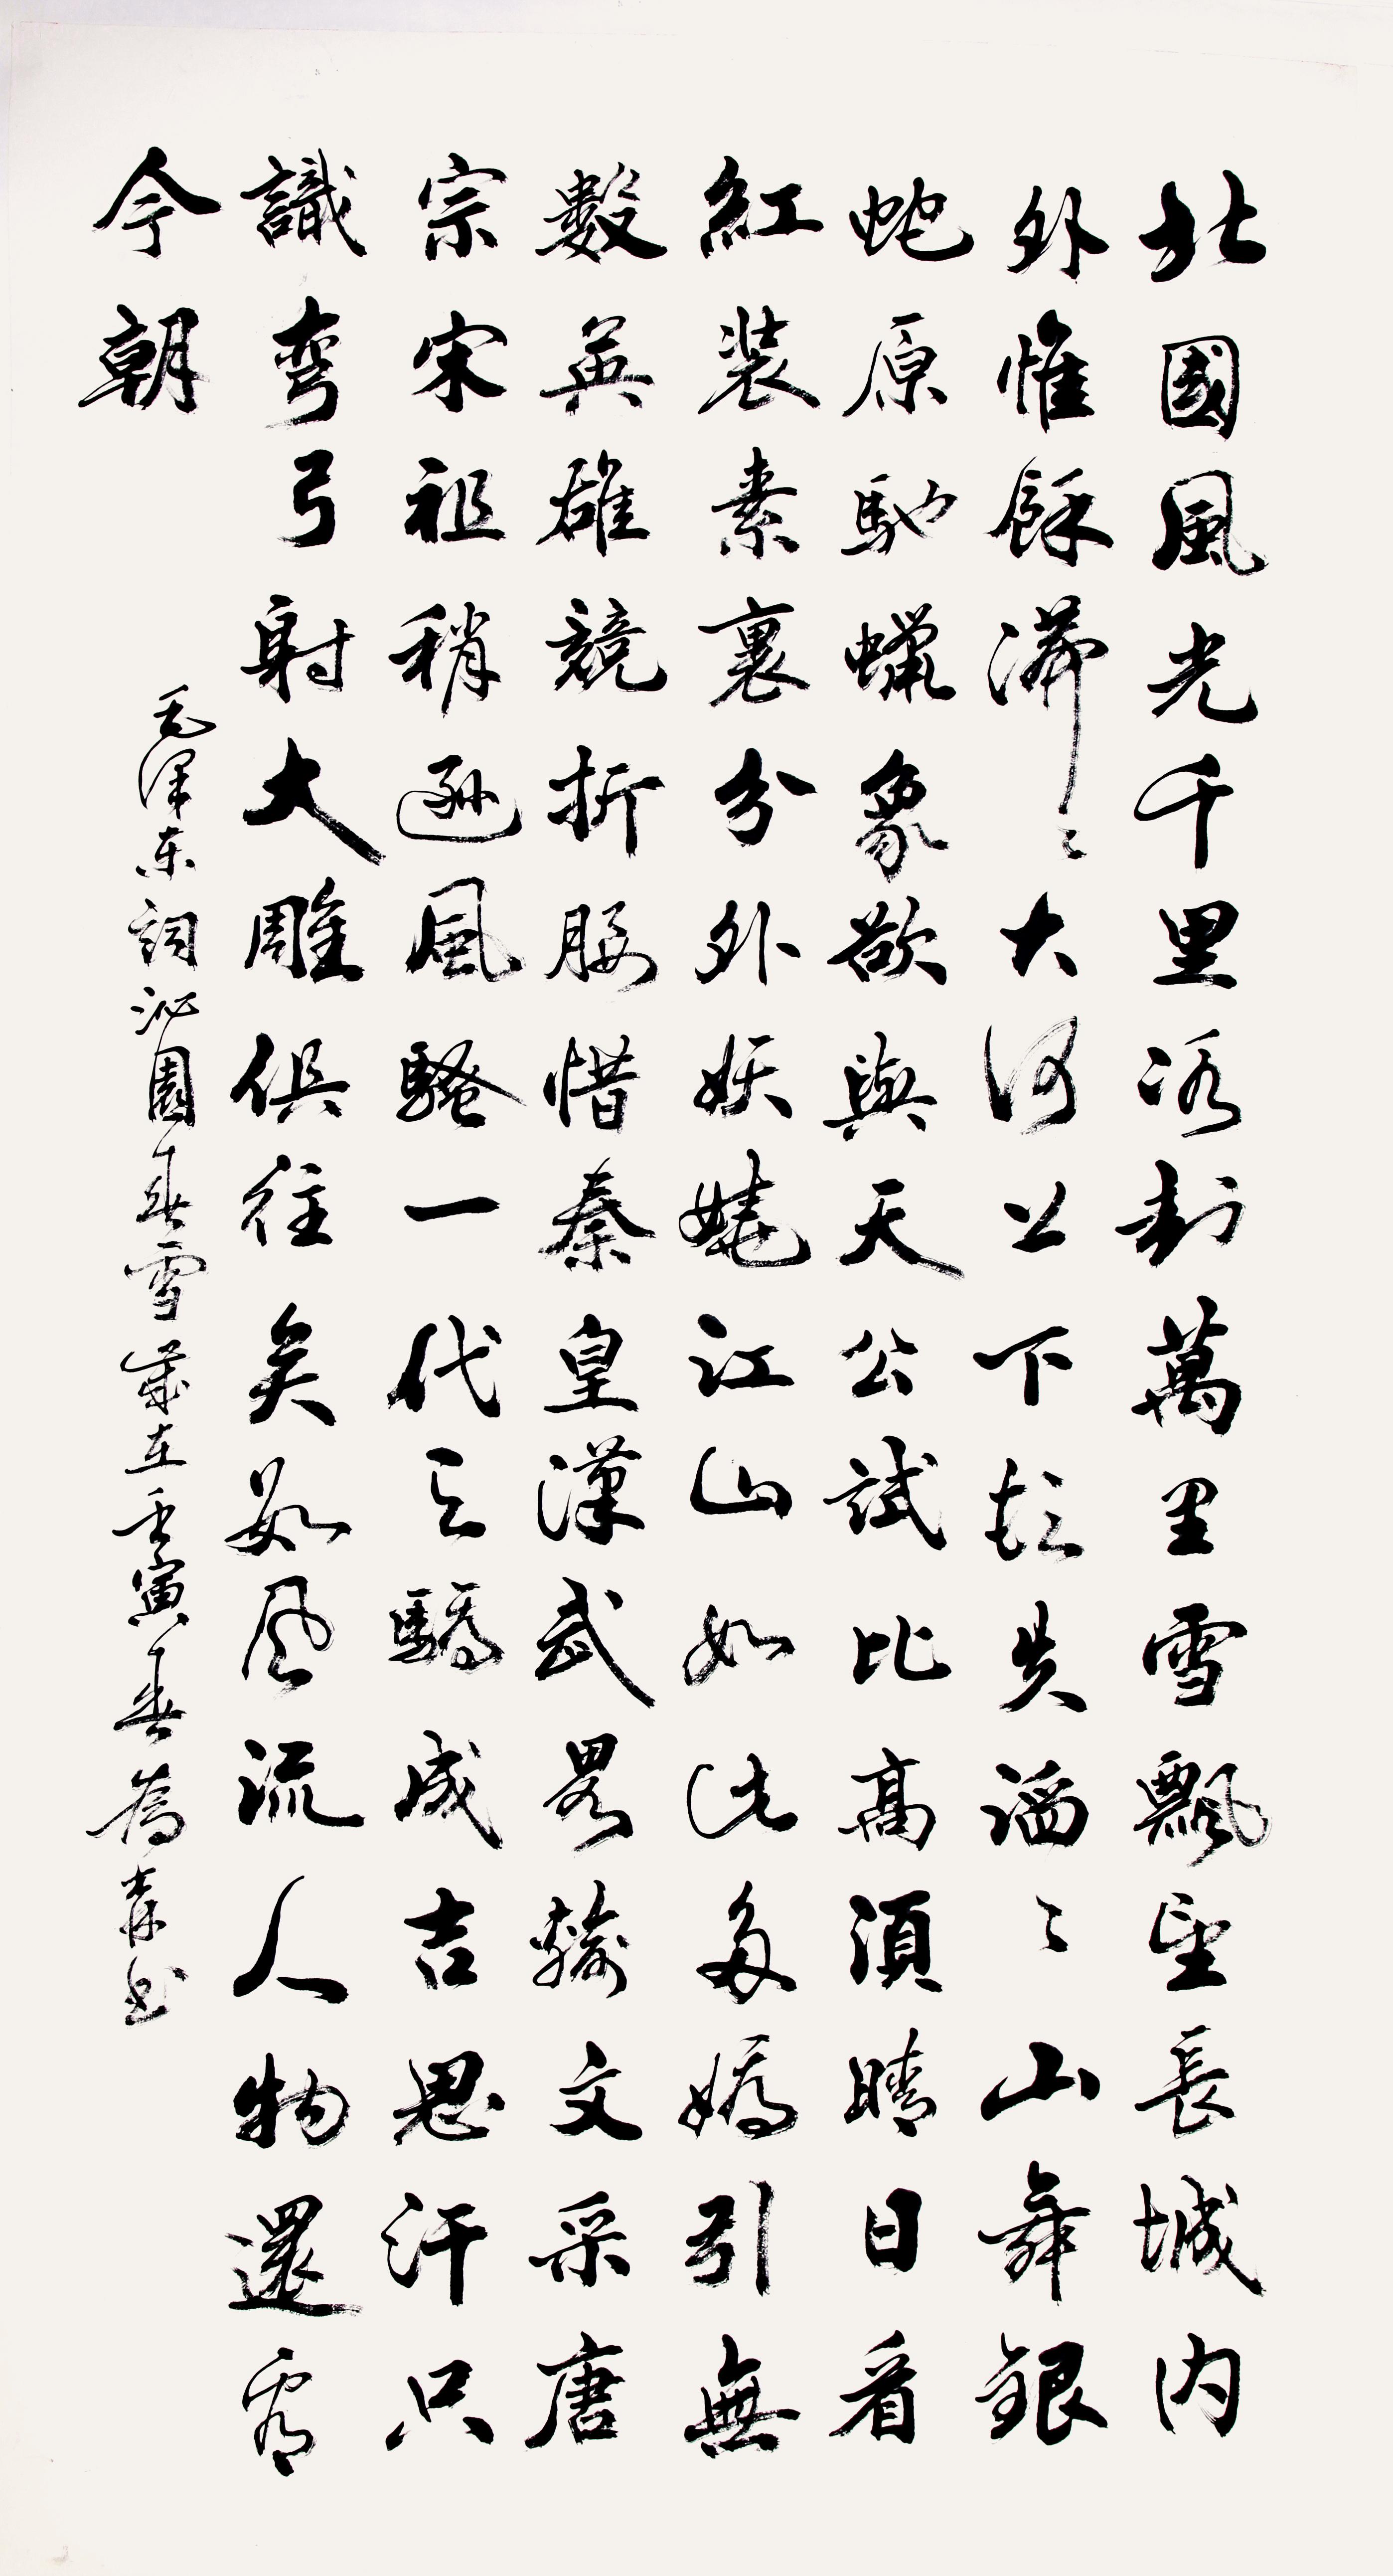 北國風光千里冰封萬里雪飄望長城內
外惟餘漭〻大河上下頓失滔〻山舞銀
蛇原馳蠟象欲與天公試比高須晴日看
紅裝素裹分外妖嬈江山如此多嬌引無
數英雄競折腰惜秦皇漢武畧輸文采唐
宗宋祖稍遜風騷一代天驕成吉思汗只
識彎弓射大雕俱往矣數風流人物還看
今朝
毛澤东詞沁園春雪歲在壬寅春喬森书